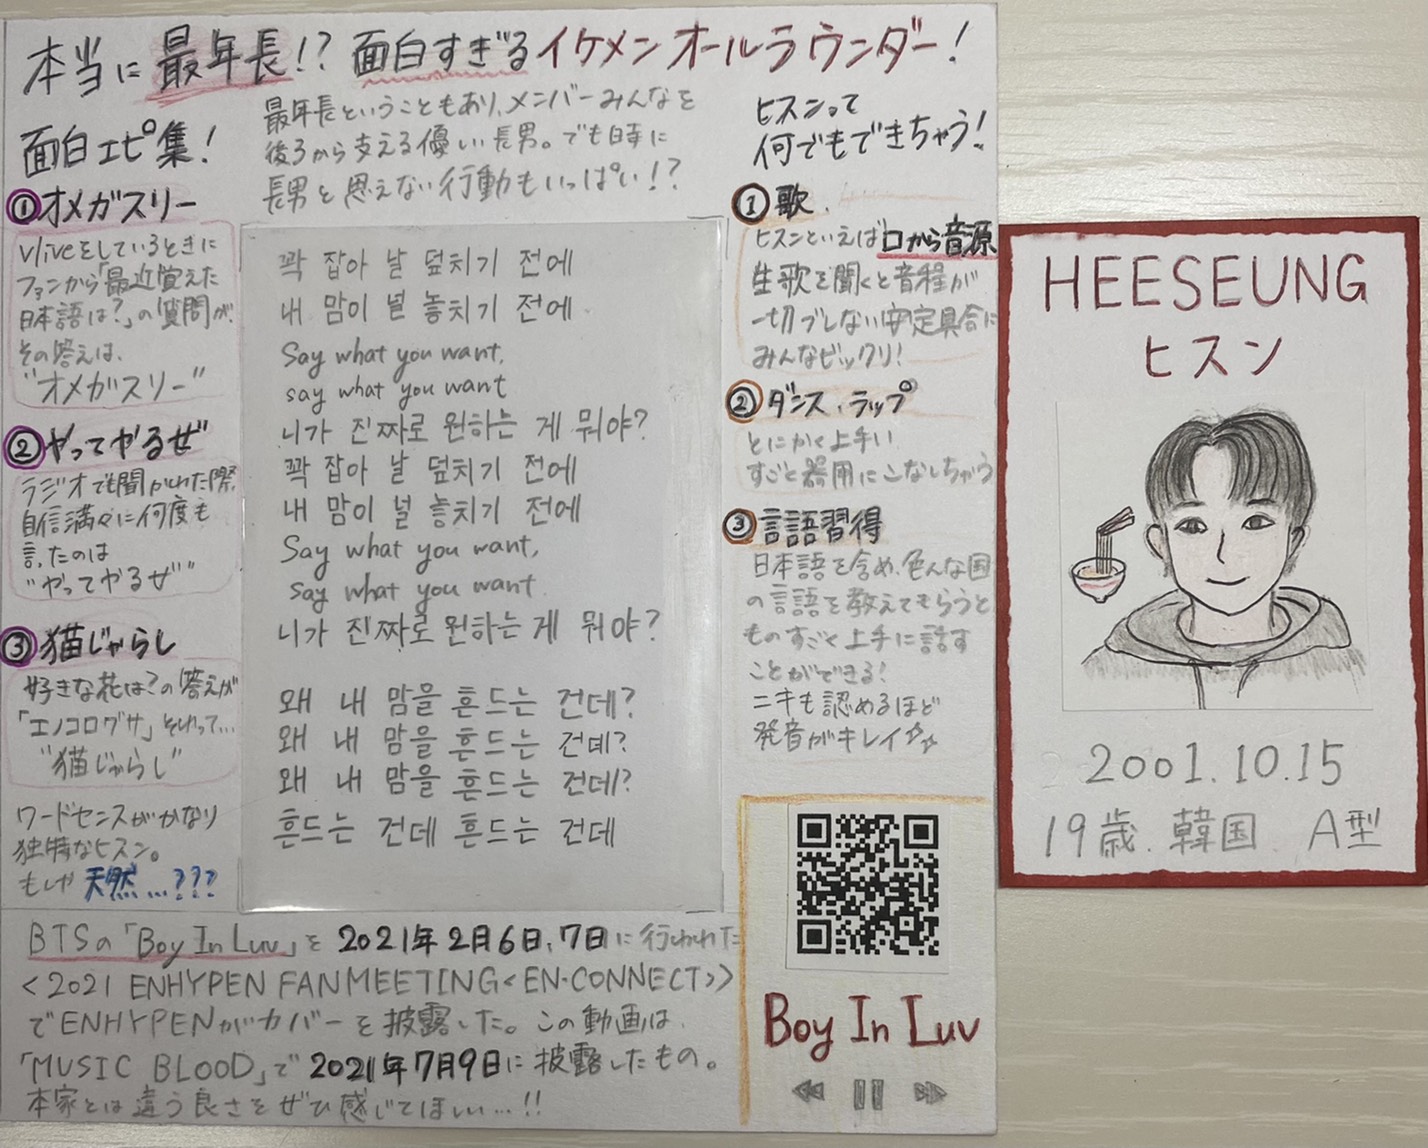 本当に最年長!? 面白すぎるイケメンオールラウンダー!
最年長ということもあり、メンバーみんなを
後ろから支える優しい長男。でも時に
長男と思えない行動もいっぱい!?
面白エピ集!
①オメガスリー
Vliveをしているときに
ファンから「最近覚えた
日本語は?」の質問が。
その答えは、
"オメガスリー"
②やってやるぜ
ラジオでも聞かれた際
自信満々に何度も
言ったのは
"やってやるぜ"
③猫じゃらし
好きな花は?の答えが
「エノコログサ」それって…
"猫じゃらし"
ワードセンスがかなり
独特なヒスン。
もしや天然…???
꽉 잡아 날 덮치기 전에
내 맘이 널 놓치기 전에
Say what you want,
say what you want
니가 진짜로 원하는 게 뭐야?
꽉 잡아 날 덮치기 전에
내 맘이 널 놓치기 전에
Say what you want,
say what you want
니가 진짜로 원하는 게 뭐야?
왜 내 맘을 흔드는 건데?
왜 내 맘을 흔드는 건데?
왜 내 맘을 흔드는 건데?
흔드는 건데 흔드는 건데
ヒスンって
何でもできちゃう!
①歌
ヒスンといえば口から音源
生歌を聞くと音程が
一切ブレない安定具合に
みんなビックリ!
②ダンス、ラップ
とにかく上手い
すごと器用にこなしちゃう
③言語習得
日本語を含め、色んな国
の言語を教えてもらうと
ものすごく上手に話す
ことができる!
ニキも認めるほど
発音がキレイ
BTSの「Boy In Luv」を2021年2月6日、7日に行われた
<2021 ENHYPEN FANMEETING<EN-CONNECT>>
でENHYPENがカバーを披露した。この動画は、
「MUSIC BLOOD」で2021年7月9日に披露したもの。
本家とは違う良さをぜひ感じてほしい…!!
Boy In Luv
HEESEUNG
ヒスン
2001.10.15
19歳. 韓国. A型